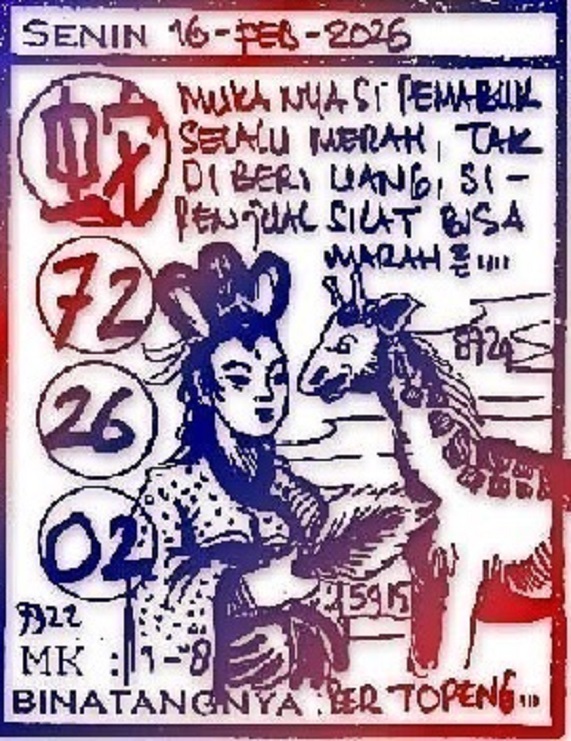 SENIN 16-FEB-2026
蛇
MUKA NYA SI PEMABUK
SELALU MERAH, TAK
DI BERI UANG, SI-
PENJUAL SILAT BISA
MARAH
72
26
02
MK : 1-8
BINATANGNYA : BER TOPENG...